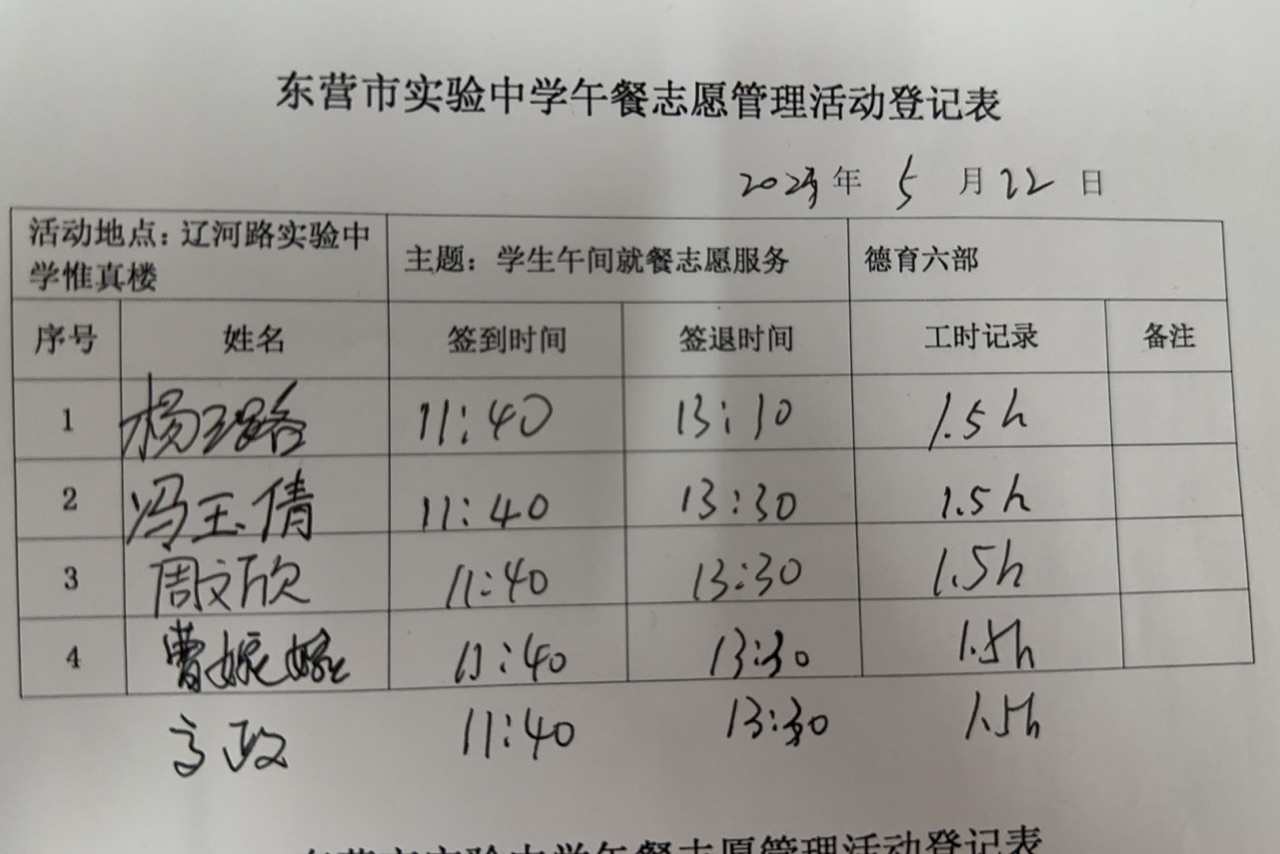 东营市实验中学午餐志愿管理活动登记表
年 5 月 22 日
活动地点：辽河路实验中学惟真楼 主题：学生午间就餐志愿服务 德育六部
序号 姓名 签到时间 签退时间 工时记录 备注
1 杨 路 11:40 13:10 1.5h
2 冯玉倩 11:40 13:30 1.5h
3 周文欣 11:40 13:30 1.5h
4 曹 11:40 13:30 1.5h
高政 11:40 13:30 1.5h
东营市实验中学午餐志愿管理活动登记表